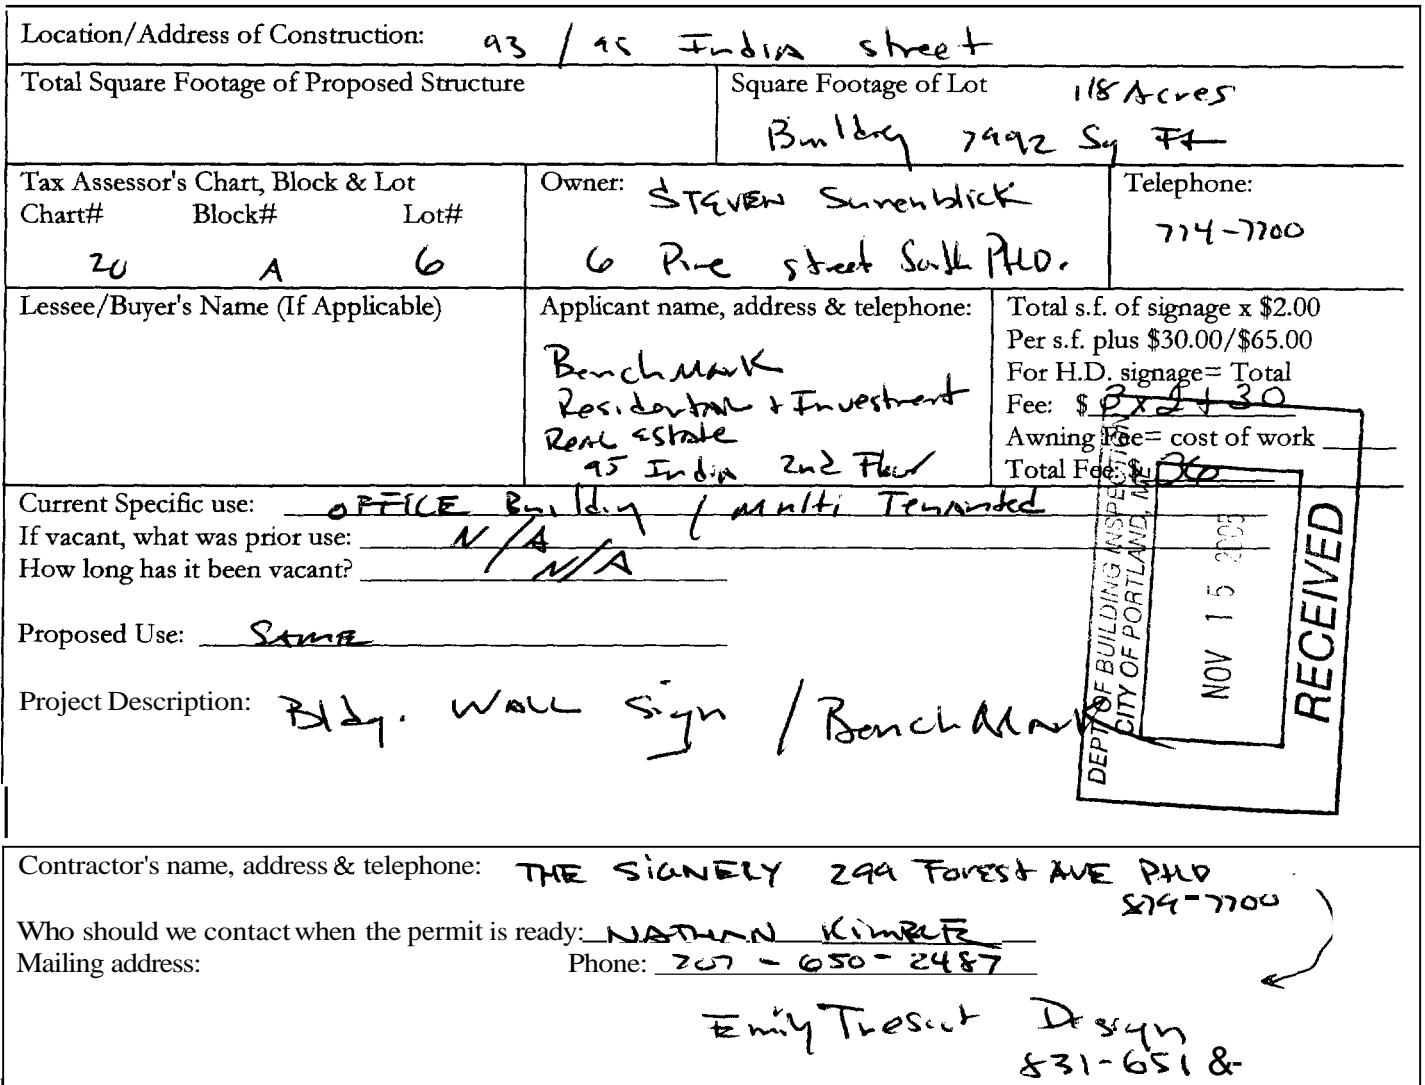 Location/Address of Construction: 93 / 95 India street
Total Square Footage of Proposed Structure
Square Footage of Lot 118 Acres
Building 7992 Sq Ft
Tax Assessor's Chart, Block & Lot
Chart# Block# Lot#
20 A 6
Owner: STEVEN
6 Pine street South PtLD.
Telephone:
774-7700
Lessee/Buyer's Name (If Applicable)
Applicant name, address & telephone:
BenchMark
Residential + Investment
Real Estate
95 India 2nd Floor
Total s.f. of signage x $2.00
Per s.f. plus $30.00/$65.00
For H.D. signage= Total
Fee: $ 3 x 2 + 30
Awning Fee= cost of work
Total Fee: $ 36
Current Specific use: OFFICE Building / Multi Tenanted
If vacant, what was prior use: N/A
How long has it been vacant? N/A
Proposed Use: SAME
Project Description: Bldg. WALL Sign / BenchMark
DEPT. OF BUILDING INSPECTION
CITY OF PORTLAND, ME
NOV 15 2005
RECEIVED
Contractor's name, address & telephone: THE SIGNERY 299 Forest AVE PtLD
879-7700
Who should we contact when the permit is ready: NATHAN KIMBLE
Mailing address: Phone: 207 - 650 - 2487
Emily Design
831-651